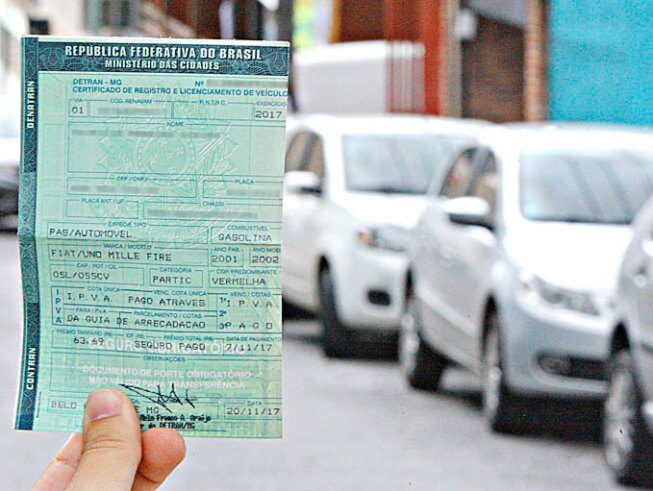 REPÚBLICA FEDERATIVA DO BRASIL
MINISTÉRIO DAS CIDADES
DENATRAN
DETRAN - MG Nº
CERTIFICADO DE REGISTRO E LICENCIAMENTO DE VEÍCULO
VIA CÓD. RENAVAM R.N.T.R.C. EXERCÍCIO
01 2017
NOME
CPF / CNPJ PLACA
PLACA ANT / UF CHASSI
ESPÉCIE TIPO COMBUSTÍVEL
PAS/AUTOMOVEL GASOLINA
MARCA / MODELO ANO FAB. ANO MOD.
FIAT/UNO MILLE FIRE 2001 2002
CAP / POT / CIL CATEGORIA COR PREDOMINANTE
05L/055CV PARTIC VERMELHA
COTA ÚNICA VENC. COTA ÚNICA VENC. / COTAS
IPVA I.P.V.A PAGO ATRAVES 1ª I.P.V.A
FAIXA I.P.V.A. PARCELAMENTO / COTAS 2ª
DA GUIA DE ARRECADACAO 3ª P-A-G-O
PRÊMIO TARIFÁRIO PRÊMIO TOTAL DATA DE PAGAMENTO
63.69 SEGURO PAGO 7/11/17
OBSERVAÇÕES
DOCUMENTO DE PORTE OBRIGATÓRIO
NÃO VÁLIDO PARA TRANSFERÊNCIA
CONTRAN
DATA
BELO MG 20/11/17
Franco A. Araújo
DETRAN/MG